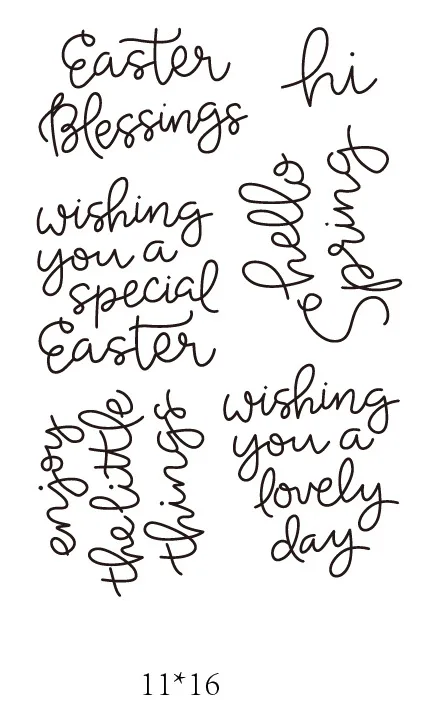 Easter
Blessings
hi
wishing
you a
special
Easter
hello
Spring
enjoy
the little
things
wishing
you a
lovely
day
11*16